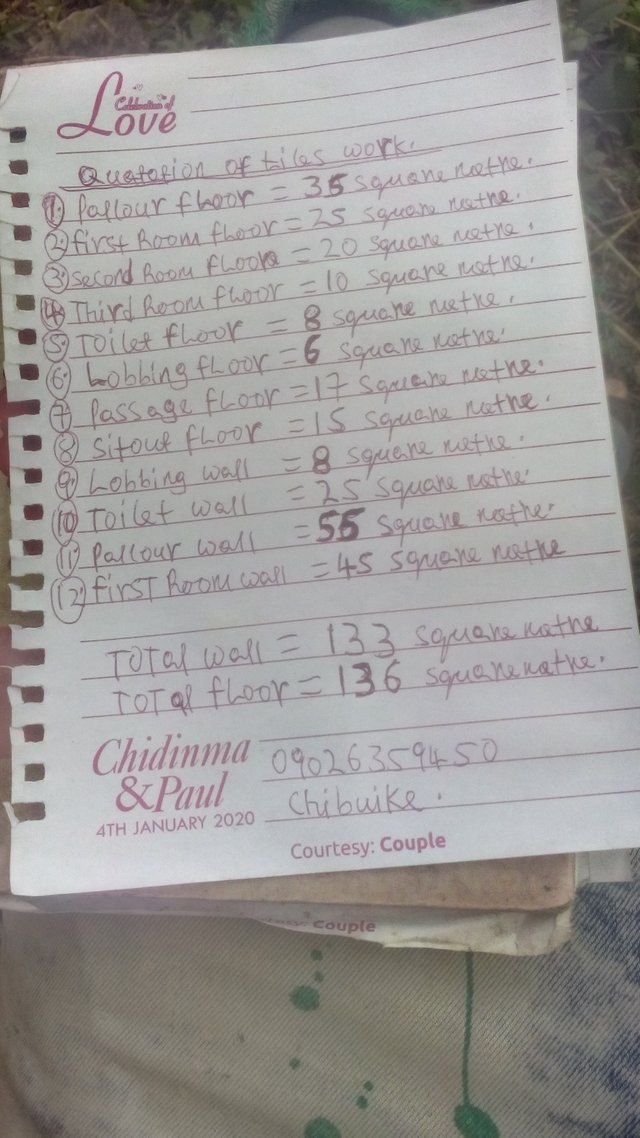 Celebration of
Love
Quotation of tiles work.
1. Pallour floor = 35 square metre.
2. first Room floor = 25 square metre.
3. Second Room floor = 20 square metre.
4. Third Room floor = 10 square metre.
5. Toilet floor = 8 square metre.
6. Lobbing floor = 6 square metre.
7. Passage floor = 17 square metre.
8. Sitout floor = 15 square metre.
9. Lobbing wall = 8 square metre.
10. Toilet wall = 25 square metre.
11. Pallour wall = 55 square metre.
12. first Room wall = 45 square metre
Total wall = 133 square metre
Total floor = 136 square metre.
Chidinma
&Paul
4TH JANUARY 2020
09026359450
Chibuike.
Courtesy: Couple
Couple